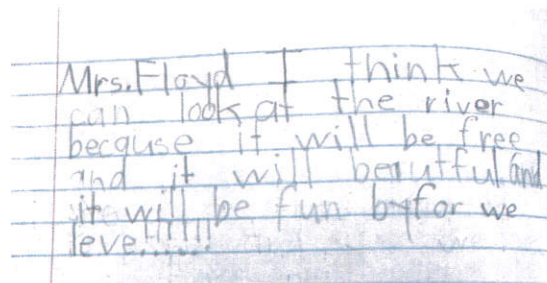 Mrs. Floyd I think we
can look at the river
because it will be free
and it will beautful and
it will be fun befor we
leve!!!!!!